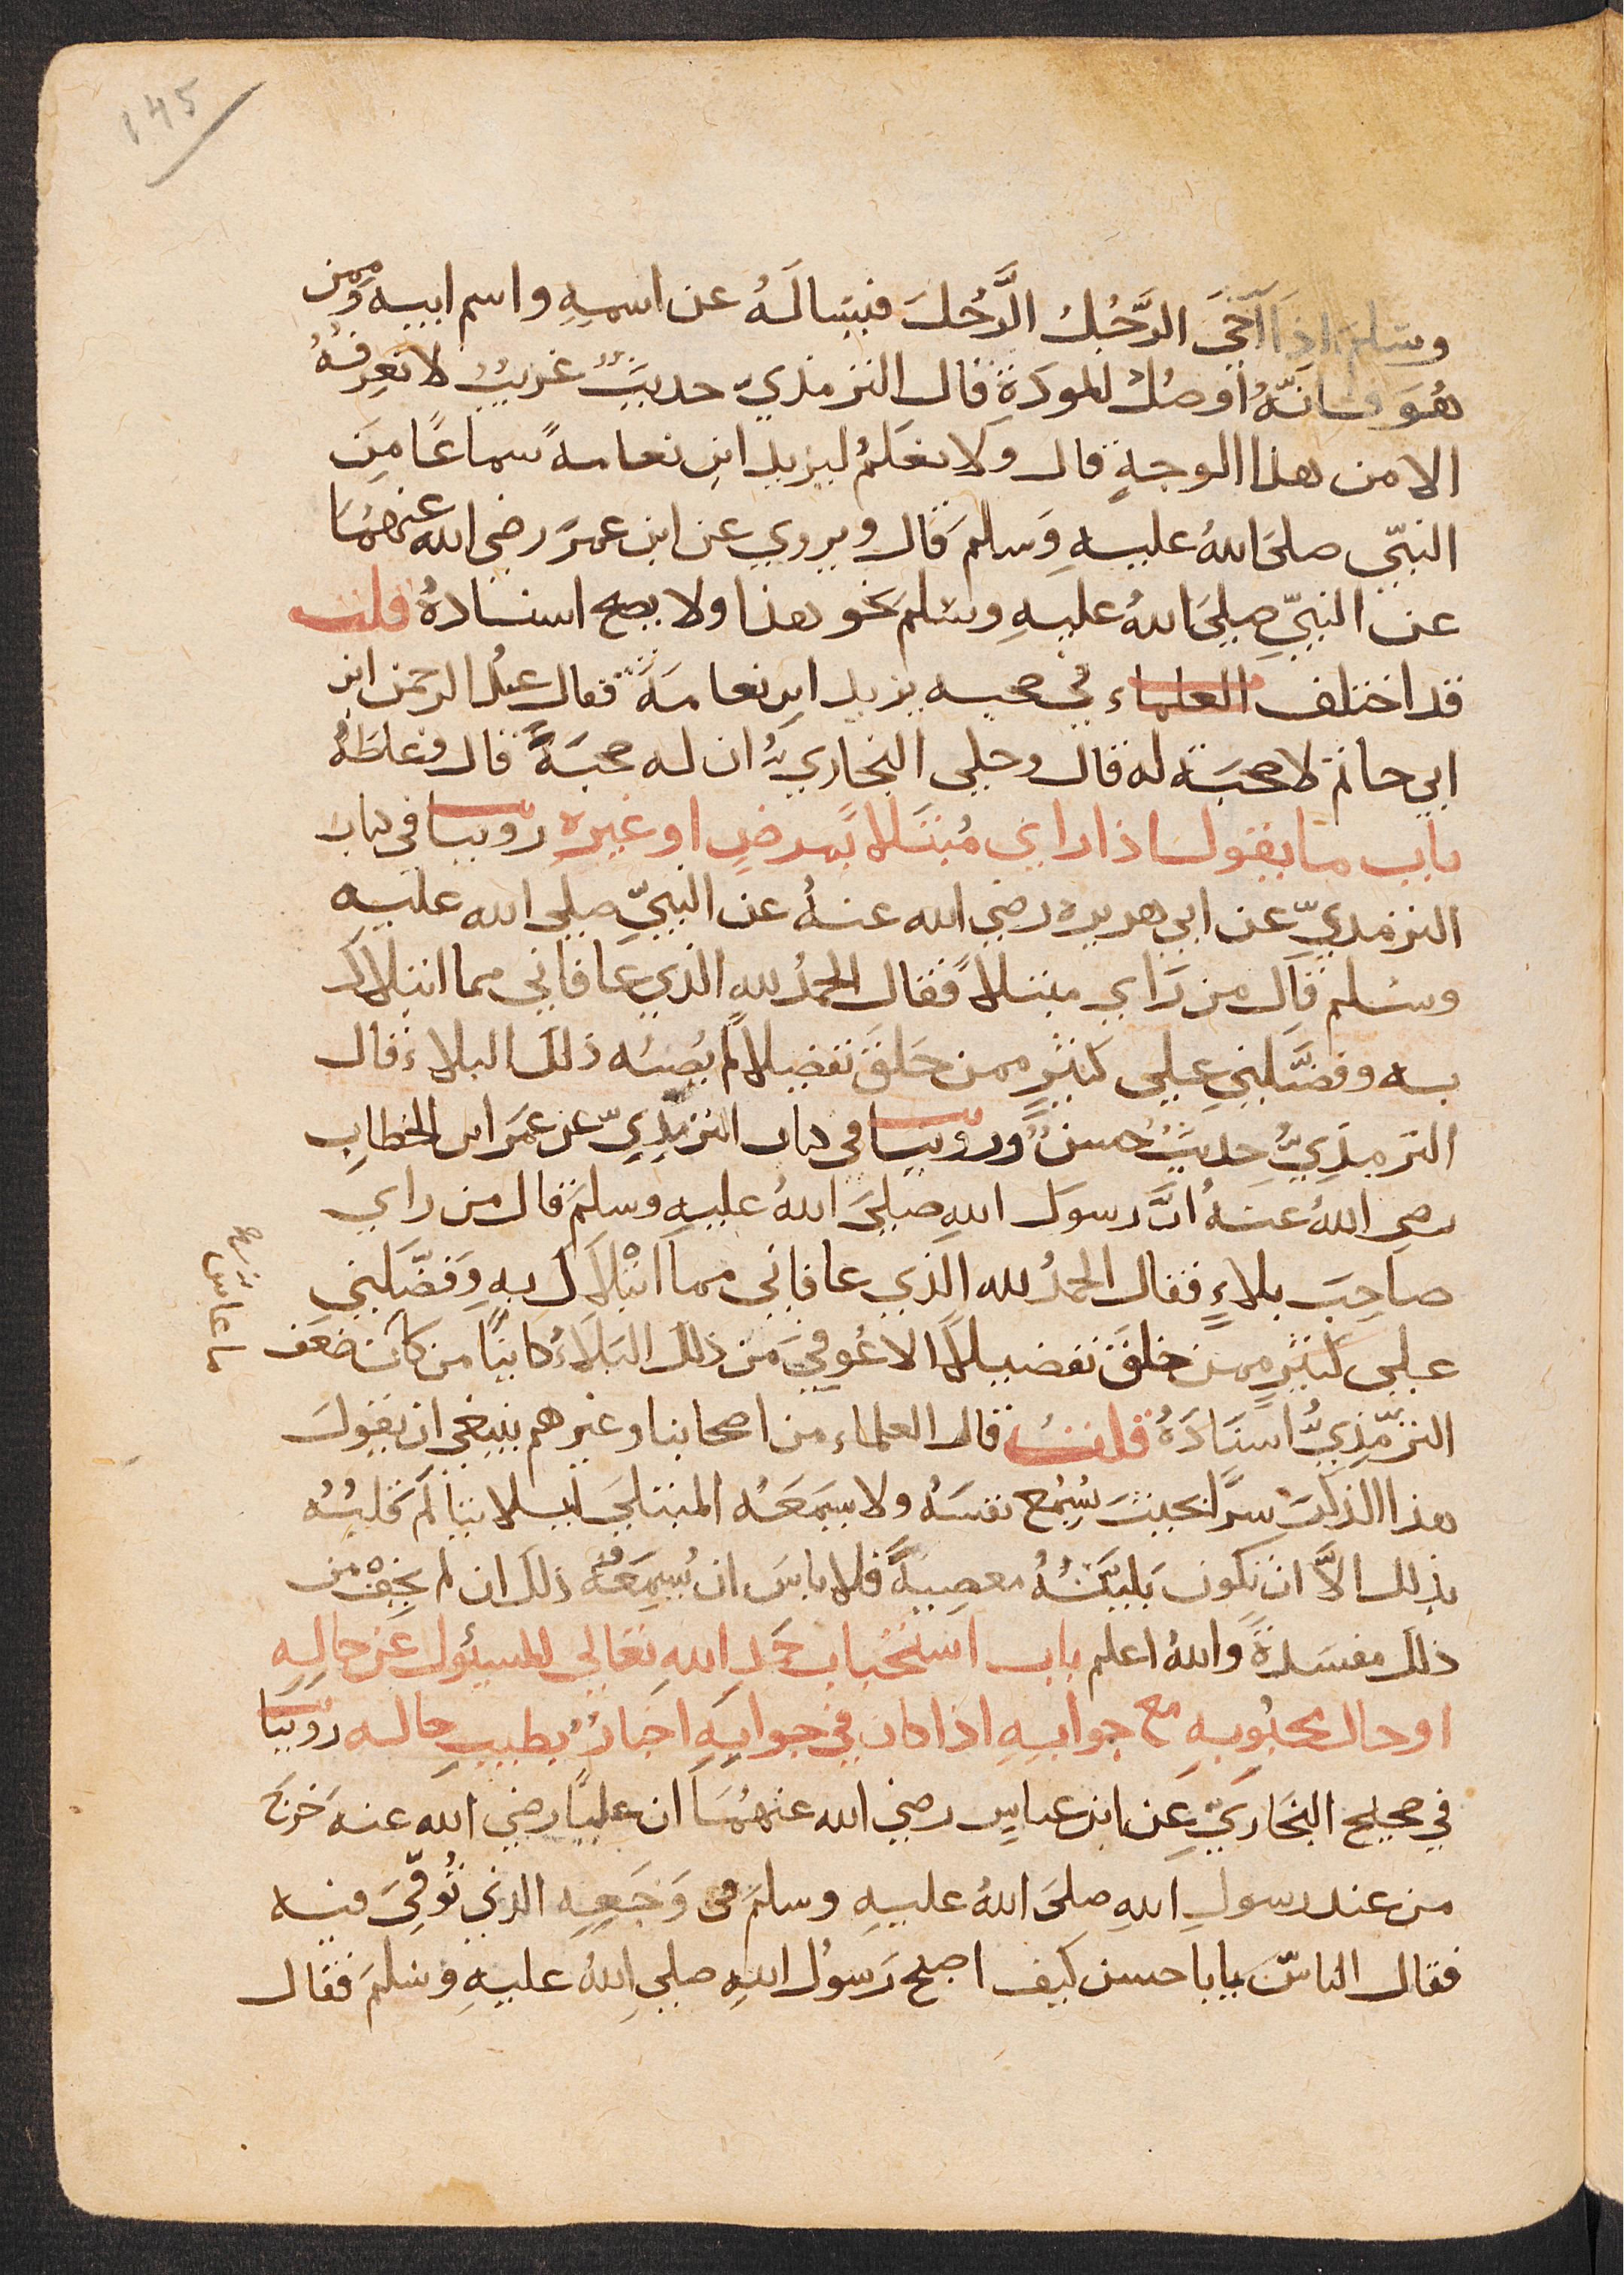 ١٤٥
وسلم اذا آخَى الرَّجُلُ الرَّجُلَ فليساله عن اسمِهِ واسم ابيه وممن
هُوَ فانّهُ اوصلُ للمودةِ قال الترمذيّ حديثٌ غريبٌ لا نعرفهُ
الا من هذا الوجهِ قال ولا نعلمُ ليزيد ابنِ نعامةَ سماعًا مِن
النبيّ صلى اللهُ عليهِ وَسلمَ قال ويروي عن ابن عمرَ رضي الله عنهُمَا
عن النبيِّ صلي اللهُ عليهِ وسلم نحو هذا ولا يصح اسنادهُ قلت
قد اختلف العلماء في صحبه يزيد ابنِ نعامَةَ فقال عبدُ الرحمن ابن
ابي حاتم لا صحبَة له قال وحكي البخاريُّ ان له صحبَةً قال وغلطهُ
باب ما يقول اذا راي مُبتلا بمرضٍ او غيرهِ روينا في كتاب
الترمذيِّ عن ابي هريره رضي الله عنهُ عن النبيِّ صلي الله عليهِ
وسلم قال من رَاي مبتلاً فقال الحمدُ للهِ الذي عافاني مما ابتلاك
به وفضَّلني علي كثيرٍ ممن خلق تفضيلاً لم يُصِبْه ذلك البلاء قال
الترمذيُّ حديثٌ حسنٌ وروينا في كتاب الترمذيّ عن عمَر ابن الخطابِ
رضي اللهُ عنهُ انَّ رسول اللهِ صلى اللهُ عليهِ وسلمَ قال من راي
صاحِبَ بلاءٍ فقال الحمدُ لله الذي عافاني مما ابْتلاَكَ بهِ وَفضّلني
علي كثيرٍ ممن خلقَ تفضيلاً الا عُوفيَ من ذلك البَلاءُ كاينًا من كان ضعف
الترمّذيُّ اسنَادَهُ قلتُ قال العلماء من اصحابنا وغيرهم ينبغي ان يقولَ
هذا الذكرَ سرًّا بحيث يُسمِع نفسَهُ ولا يسمَعَهُ المبتلي ليلا يتالم قلبُهُ
بذلك الاَّ ان تكونَ بليّتُهُ معصِيةً فلا باسَ ان يُسمِعَهُ ذلك ان لم يخفْ من
ذلك مفسَدةً واللهُ اعلم باب استحباب حمدِ اللهِ تعالي للمسئول عن حالِهِ
او حال محبُوبِهِ مع جوابِهِ اذا كان في جوابِهِ اخبارٌ بطيبِ حاله روينا
في صحيح البخاريِّ عن ابن عباسٍ رضي الله عنهُمَا ان عليًّا رضي الله عنه خرجَ
من عند رسولِ اللهِ صلى اللهُ عليهِ وسلم في وَجَعِهِ الذي تُوفّيَ فيه
فقال الناسُ يابا حسن كيف اصبح رَسولُ اللهِ صلي اللهُ عليهِ وسلمَ فقال